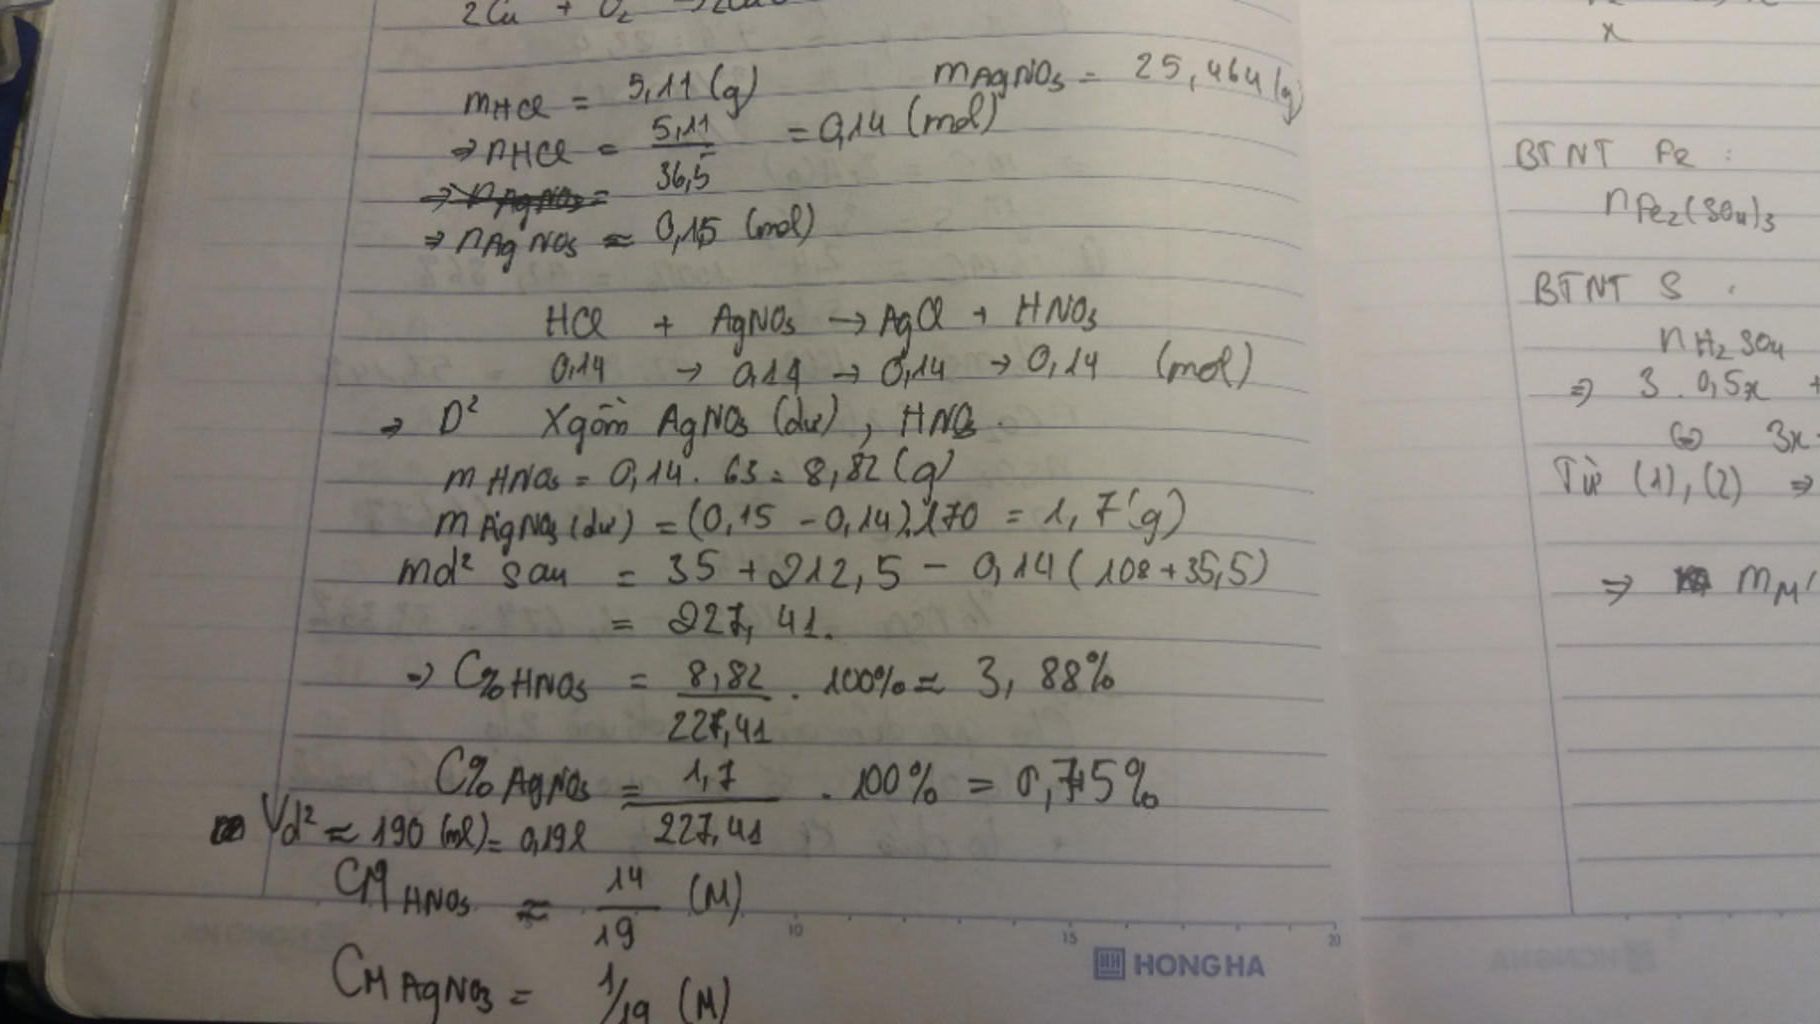 2Cu + O₂ → 2CuO
mHCl = 5,11 (g) mAgNO₃ = 25,464 (g)
⇒ nHCl = 5,11 / 36,5 = 0,14 (mol)
⇒ nAgNO₃ =
⇒ nAgNO₃ ≈ 0,15 (mol)
HCl + AgNO₃ → AgCl + HNO₃
0,14 → 0,14 → 0,14 → 0,14 (mol)
⇒ D² X gồm AgNO₃ (dư), HNO₃.
mHNO₃ = 0,14. 63 = 8,82 (g)
mAgNO₃ (dư) = (0,15 - 0,14).170 = 1,7 (g)
md² sau = 35 + 212,5 - 0,14 (108 + 35,5)
= 227,41.
⇒ C%HNO₃ = 8,82 / 227,41 . 100% ≈ 3,88%
C%AgNO₃ = 1,7 / 227,41 . 100% = 0,75%
Vd² ≈ 190 (ml) = 0,19l
CM HNO₃ ≈ 14/19 (M)
CM AgNO₃ = 1/19 (M)
10 15 20
HONG HA
x
BTNT Fe :
nFe₂(SO₄)₃
BTNT S .
nH₂SO₄
⇒ 3 . 0,5x +
⇔ 3x
Từ (1), (2) ⇒
⇒ mM